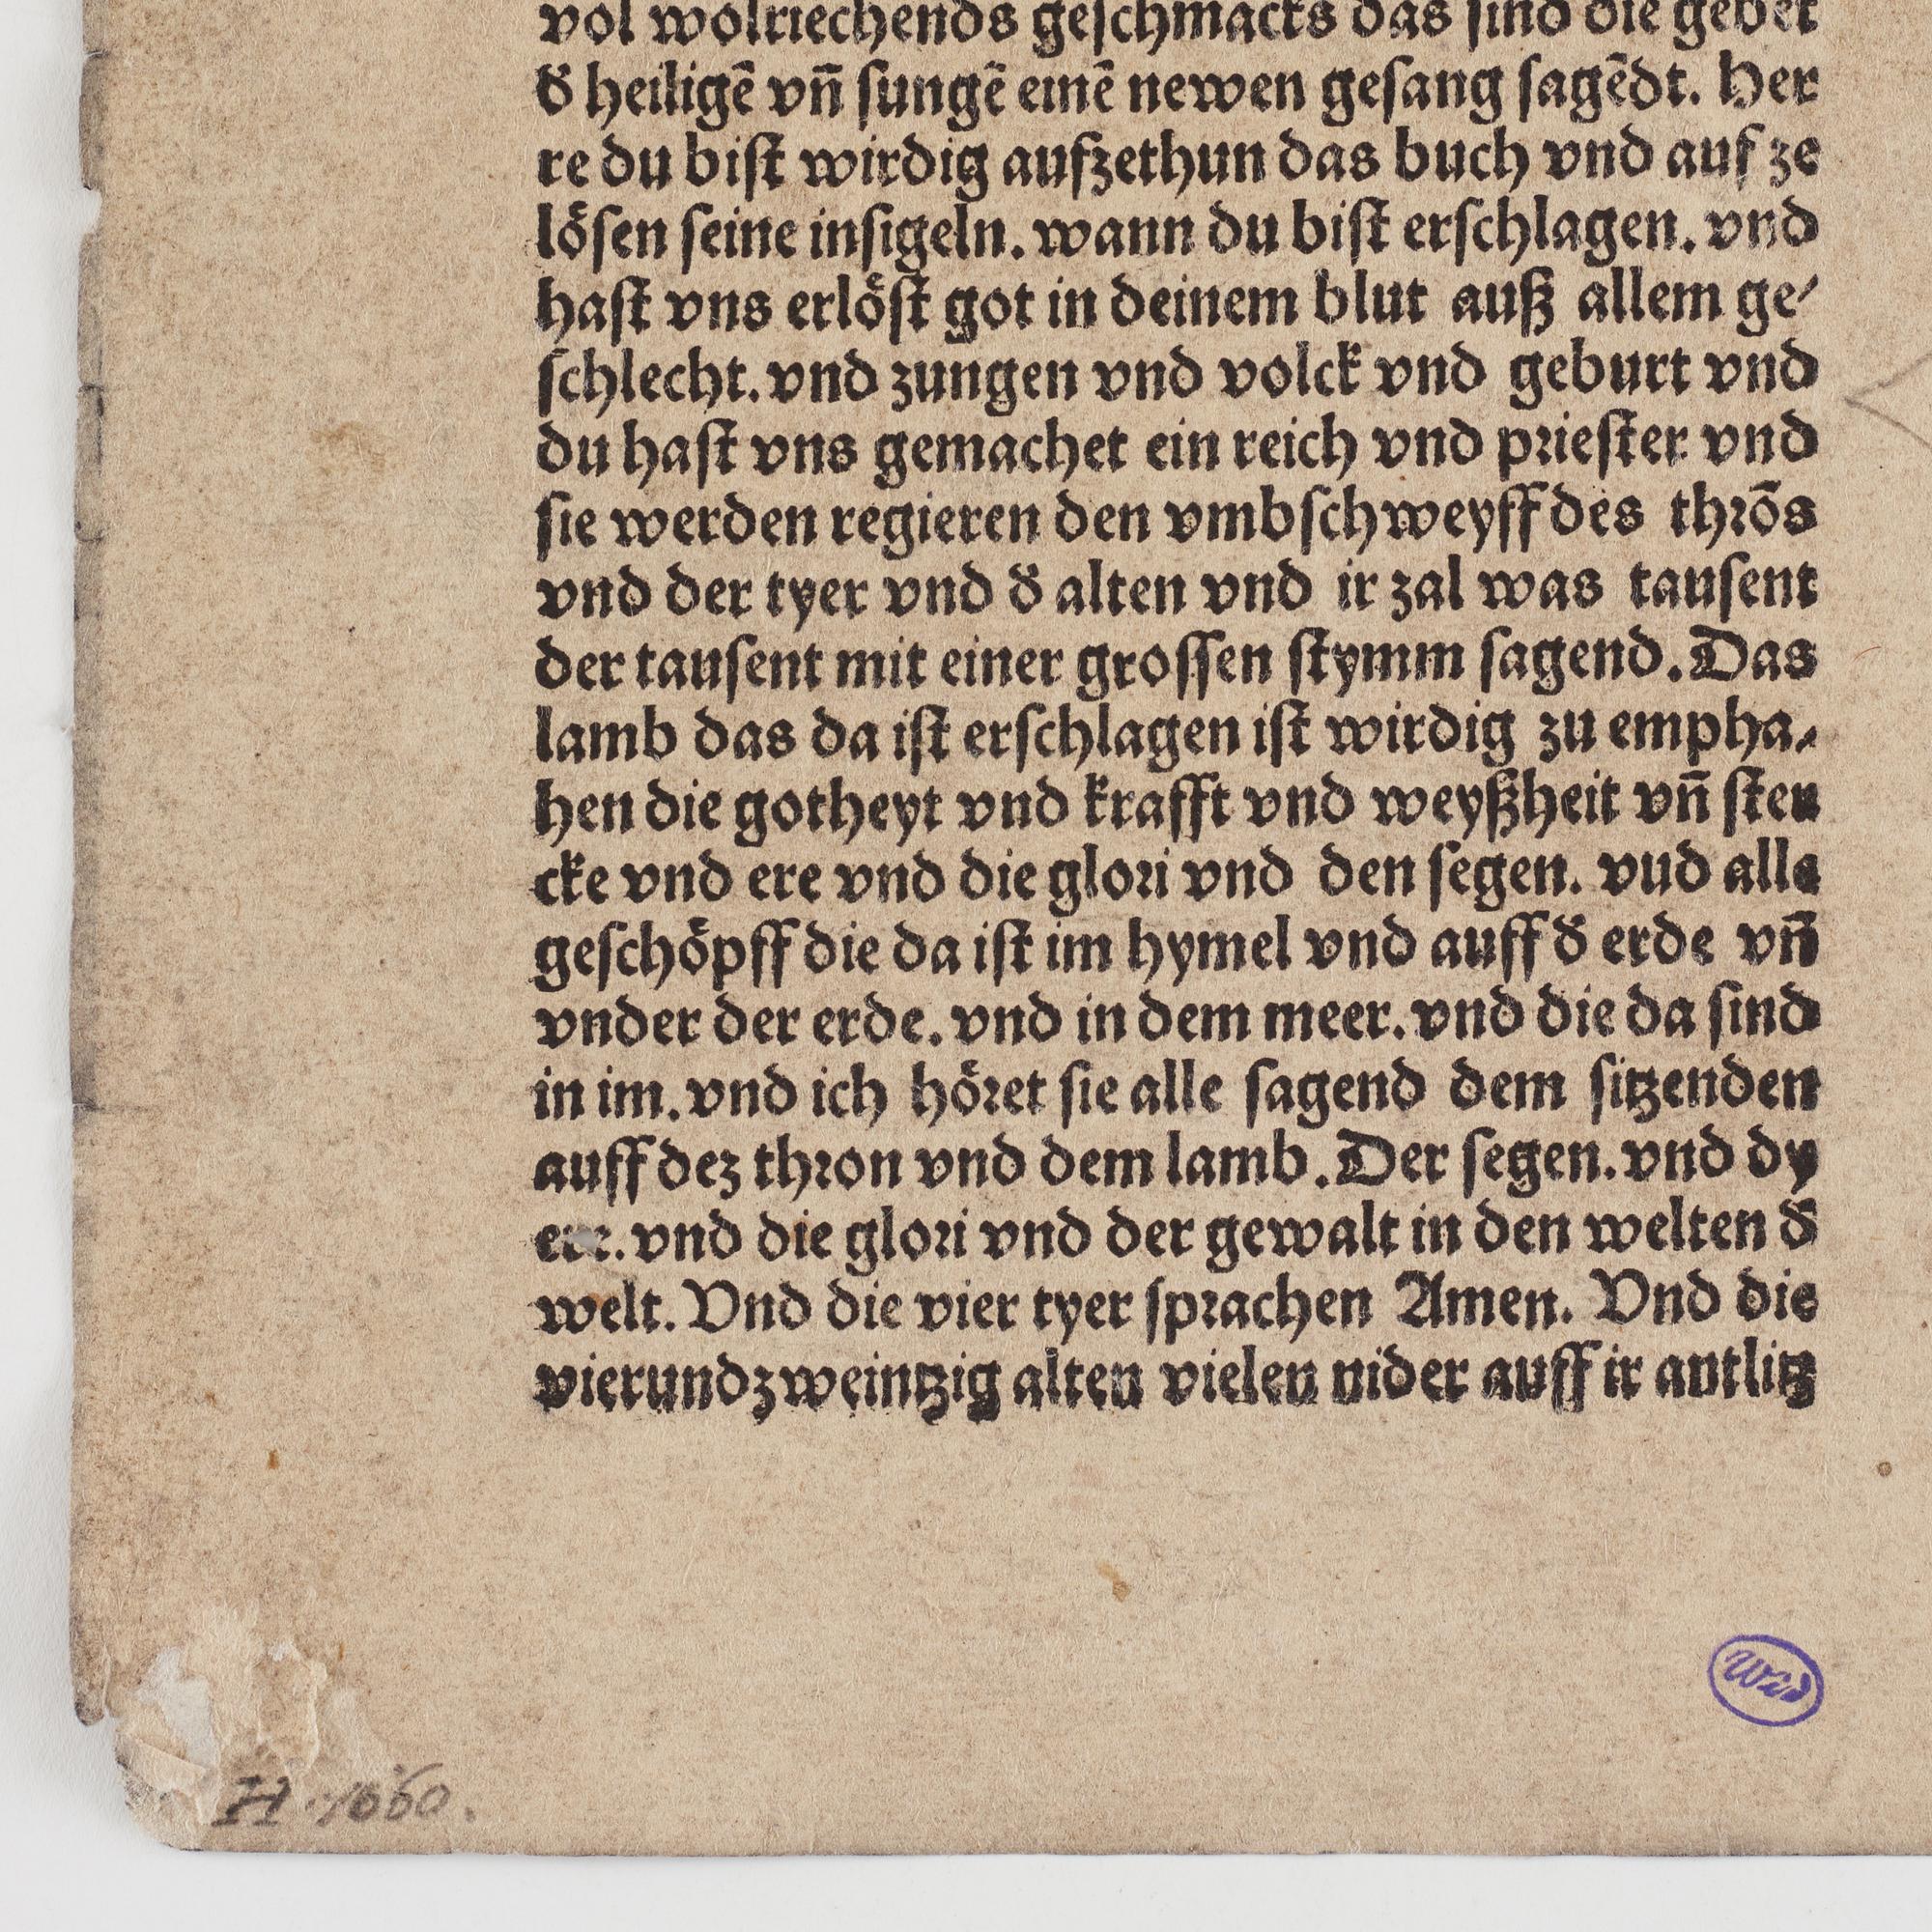 vol wolriechends geſchmacks das ſind die gebet
d̄ heiligē vn̄ ſungē einē newen geſang ſagēdt. Her
re du biſt wirdig aufzethun das buch vnd auf ze
löſen ſeine inſigeln. wann du biſt erſchlagen. vnd
haſt vns erlöſt got in deinem blut auß allem ge⸗
ſchlecht. vnd zungen vnd volck vnd geburt vnd
du haſt vns gemachet ein reich vnd prieſter vnd
ſie werden regieren den vmbſchweyff des thrōs
vnd der tyer vnd d̄ alten vnd ir zal was tauſent
der tauſent mit einer groſſen ſtymm ſagend. Das
lamb das da iſt erſchlagen iſt wirdig zu empha⸗
hen die gotheyt vnd krafft vnd weyßheit vn̄ ſter
cke vnd ere vnd die glori vnd den ſegen. vud alle
geſchöpff die da iſt im hymel vnd auff d̄ erde vn̄
vnder der erde. vnd in dem meer. vnd die da ſind
in im. vnd ich höret ſie alle ſagend dem ſitzenden
auff dez thron vnd dem lamb. Der ſegen. vnd dy
vnd die glori vnd der gewalt in den welten d̄
welt. Vnd die vier tyer ſprachen Amen. Vnd die
vierundzweintzig alten vielen nider auff ir antlitz
H. 1060.